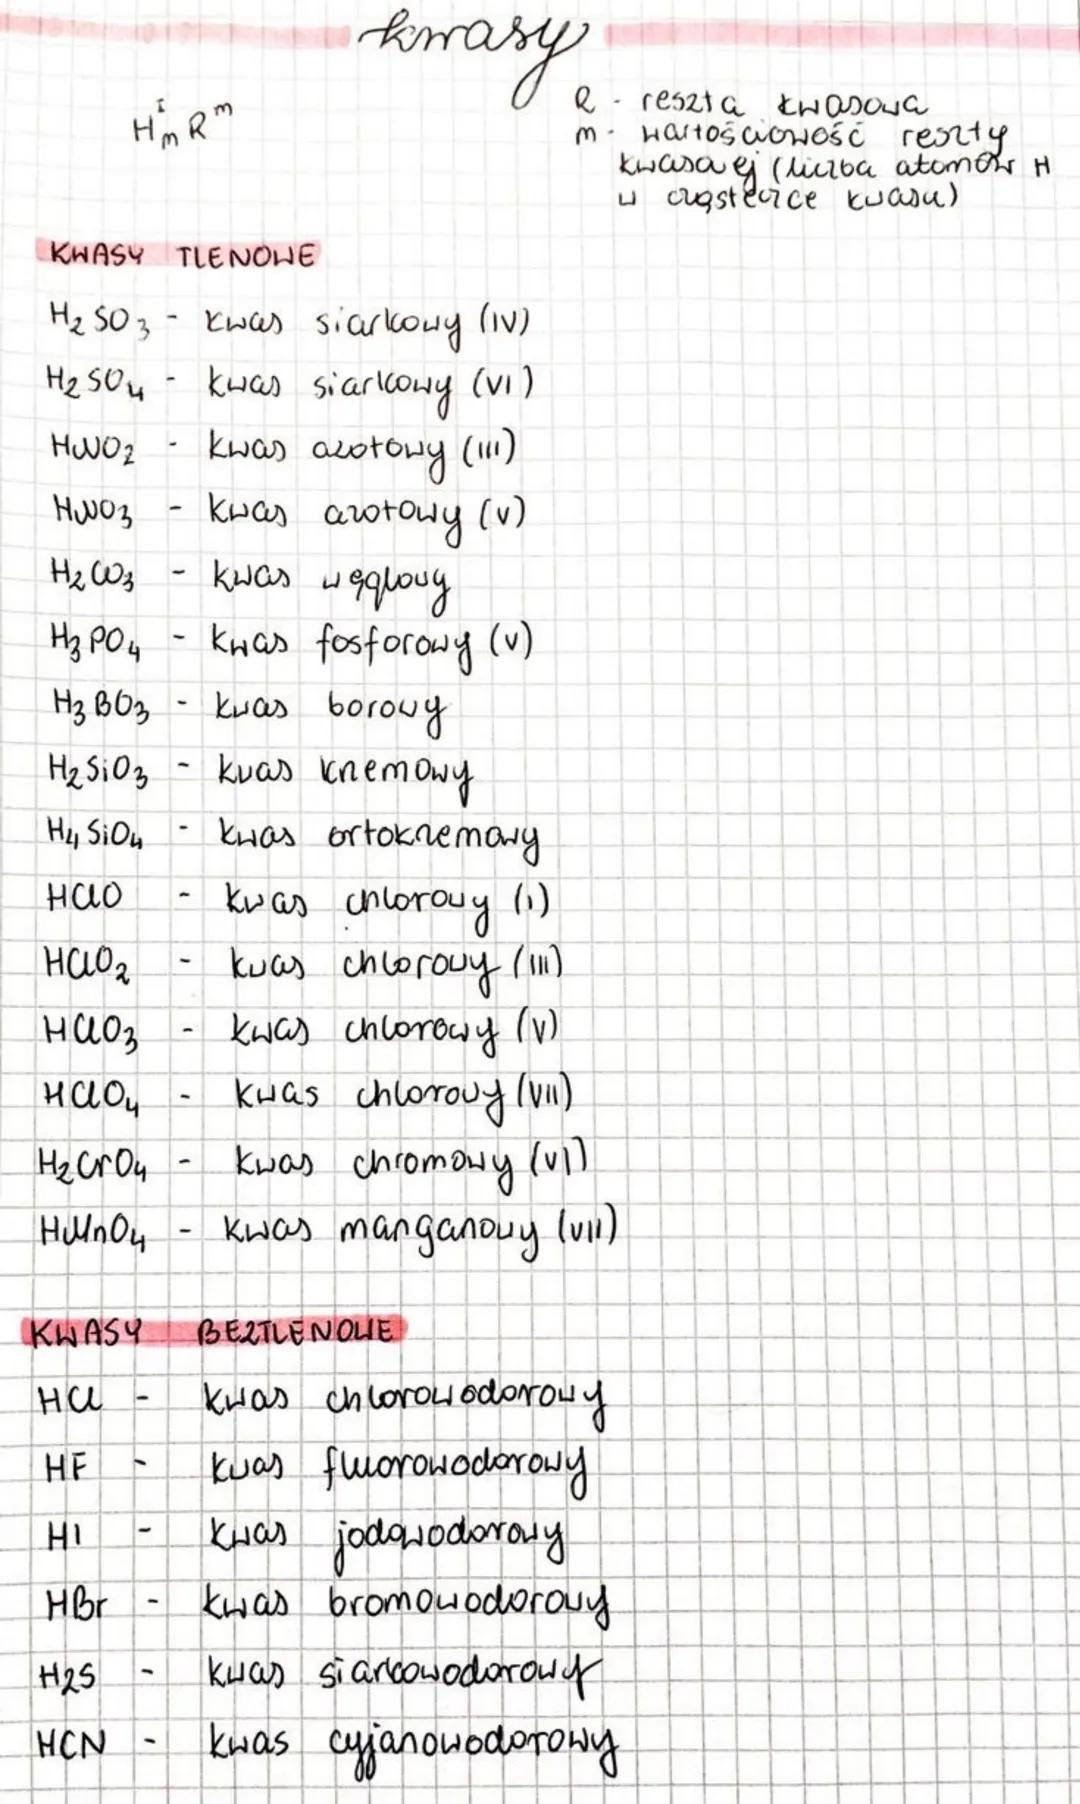 kwasy
H_m^I R^m
R - reszta kwasowa
m - wartościowość reszty
kwasowej (liczba atomów H
w cząsteczce kwasu)
KWASY TLENOWE
H₂SO₃ - kwas siarkowy (IV)
H₂SO₄ - kwas siarkowy (VI)
HNO₂ - kwas azotowy (III)
HNO₃ - kwas azotowy (V)
H₂CO₃ - kwas węglowy
H₃PO₄ - kwas fosforowy (V)
H₃BO₃ - kwas borowy
H₂SiO₃ - kwas krzemowy
H₄SiO₄ - kwas ortokrzemowy
HClO - kwas chlorowy (I)
HClO₂ - kwas chlorowy (III)
HClO₃ - kwas chlorowy (V)
HClO₄ - kwas chlorowy (VII)
H₂CrO₄ - kwas chromowy (VI)
HMnO₄ - kwas manganowy (VII)
KWASY BEZTLENOWE
HCl - kwas chlorowodorowy
HF - kwas fluorowodorowy
HI - kwas jodowodorowy
HBr - kwas bromowodorowy
H2S - kwas siarkowodorowy
HCN - kwas cyjanowodorowy